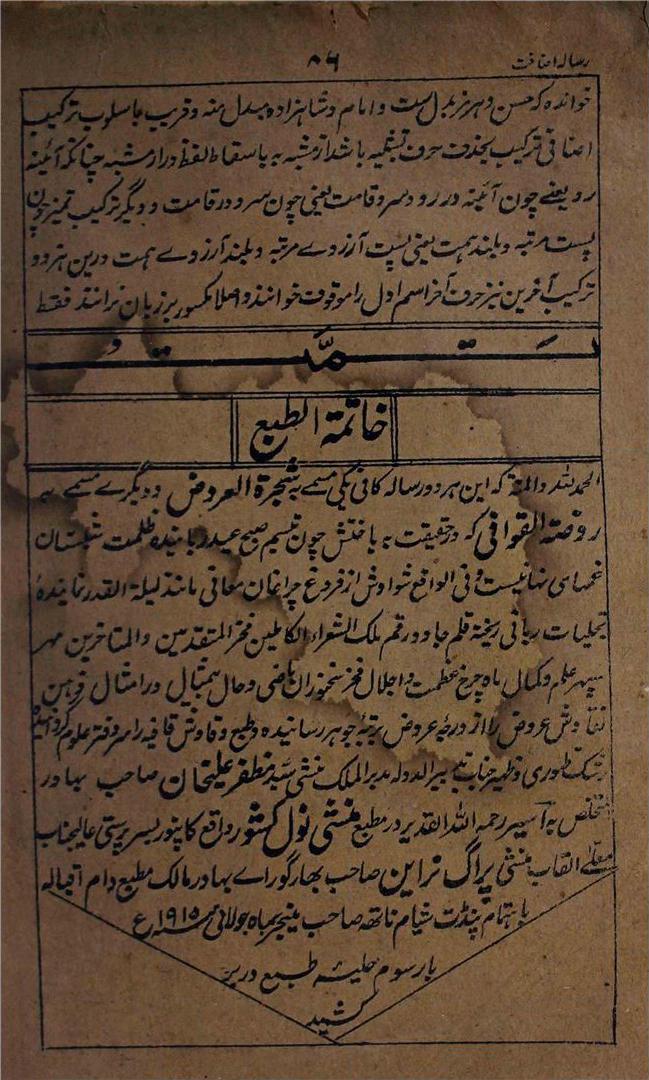 رساله اضافت ۵۶
خوانده که حسن و هرمز بدل ست و امام و شاهزاده مبدل منه و قریب باسلوب ترکیب
اضافی ترکیب بحذف حرف تشبیه باشد از مشبه به باسقاط لفظ در از مشبه چنانکه آئینه
رو یعنے چون آئینه در رو و سرو قامت یعنی چون سرو در قامت و دیگر ترکیب تمیز چون
پست مرتبه و بلند همت یعنی پست از روے مرتبه و بلند از روے همت درین هر دو
ترکیب آخرین نیز حرف آخر اسم اول را موقوف خوانند و اصلا مکسور بر زبان نرانند فقط
تمت
خاتمة الطبع
الحمد لله والمنة که این هر دو رساله کافی یکی مسمے به شجرة العروض و دیگرے مسمے به
روضة القوافی که در حقیقت به باختش چون تبسم صبح عید رباینده ظلمت شبستان
غمهای نهانیست و فی الواقع سوادش از فروغ چراغان معانی مانند لیلة القدر نماینده
تجلیات ربانی ریخته قلم جادو رقم ملک الشعراء الکاملین فخر المتقدمین والمتاخرین مهر
سپهر علم و کمال ماه چرخ عظمت و اجلال فخر سخنوران ماضی و حال بیمثال در امثال
عروض را از درجه عروض برتبه جوهر رسانیده و طبع وقادش قافیه را سر دفتر علوم گردانیده
رشک ظهوری و ظهیر جناب تدبیر الدوله مدبر الملک منشی سید مظفر علیخان صاحب بهادر
المتخلص به اسیر رحمه الله القدیر در مطبع منشی نول کشور واقع کانپور بسرپرستی عالیجناب
معلے القاب منشی پراگ نراین صاحب بهارگو راے بهادر مالک مطبع دام اقباله
باهتمام پنڈت شیام ناتهه صاحب منیجر بماه جولائی سنه ۱۹۱۵ع
بار سوم حلیۂ طبع در بر
کشید